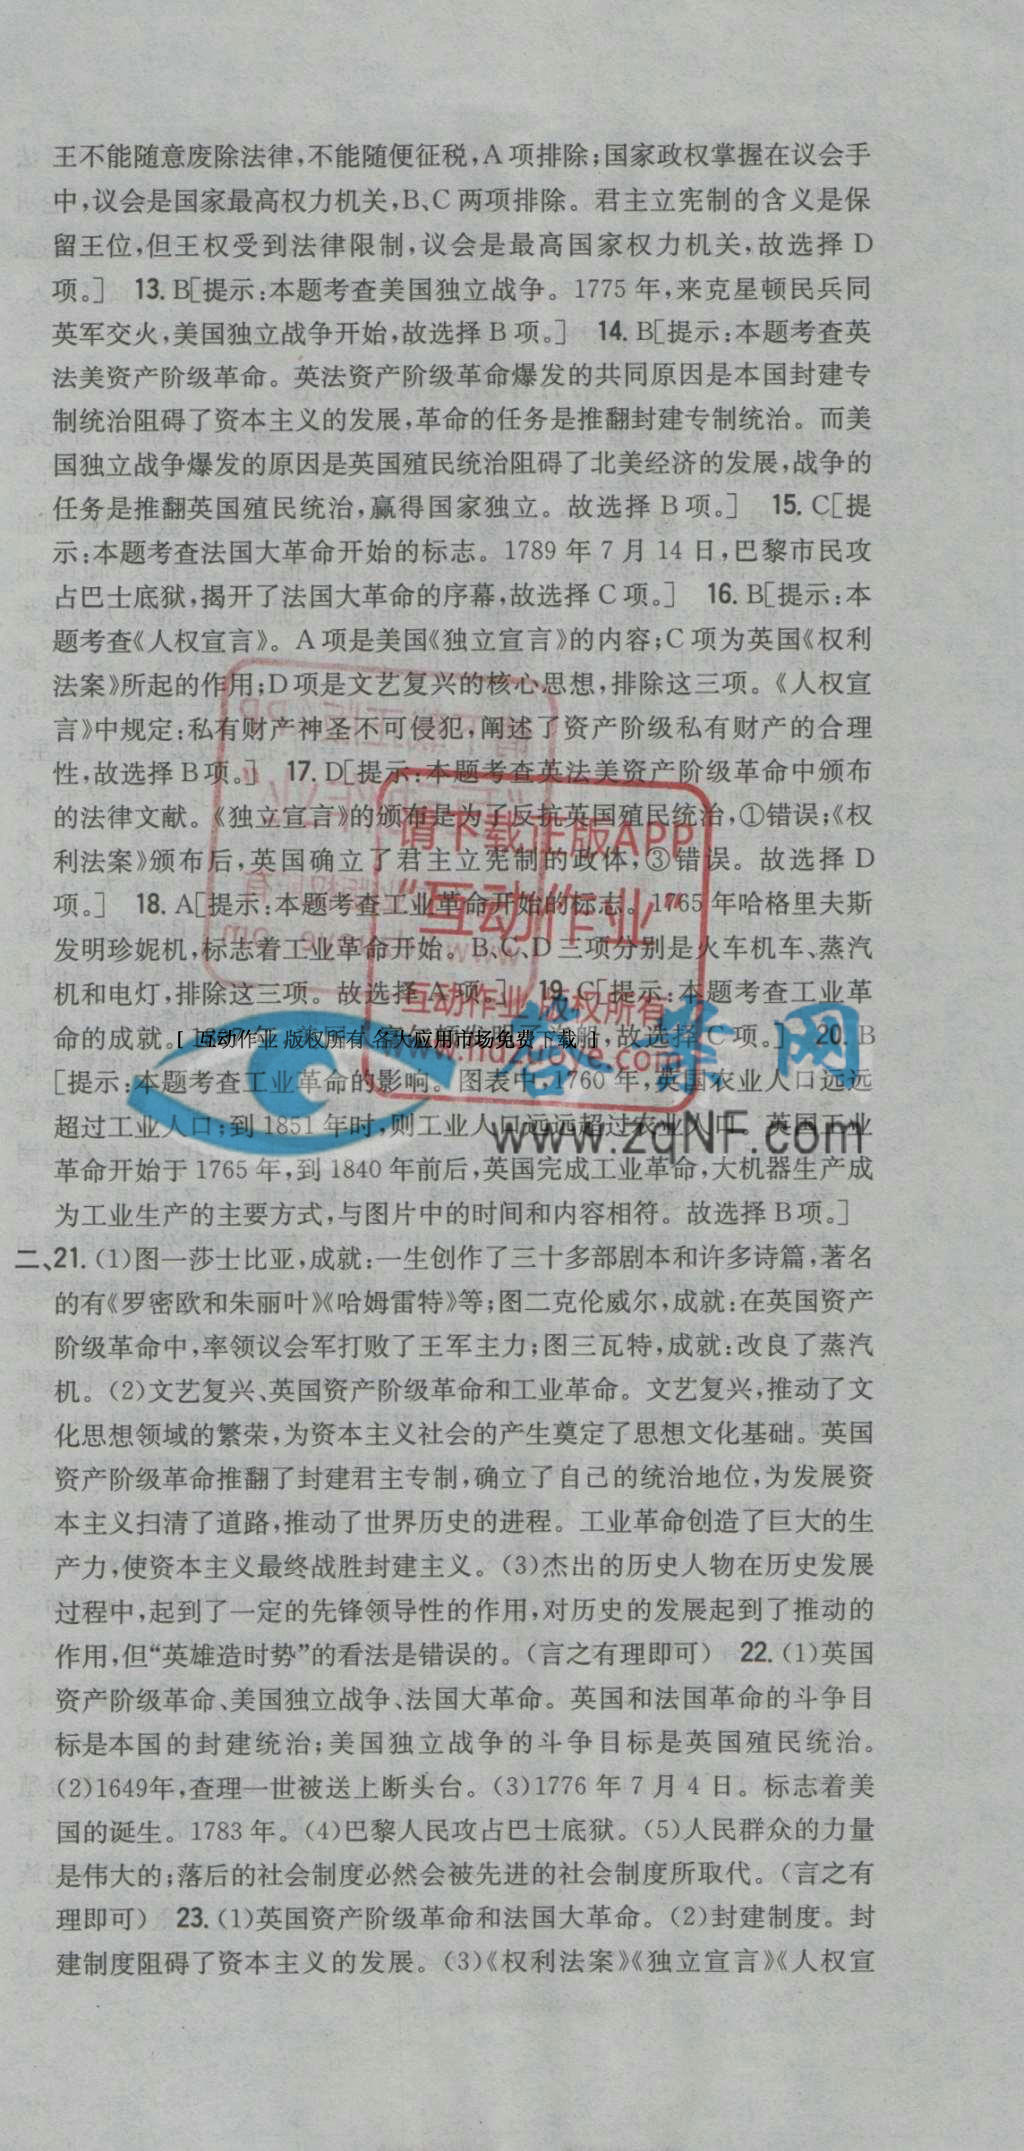 王不能随意废除法律,不能随便征税,A项排除;国家政权掌握在议会手
中,议会是国家最高权力机关,B、C两项排除。君主立宪制的含义是保
留王位,但王权受到法律限制,议会是最高国家权力机关,故选择D
项。] 13. B[提示:本题考查美国独立战争。1775年,来克星顿民兵同
英军交火,美国独立战争开始,故选择B项。] 14. B[提示:本题考查英
法美资产阶级革命。英法资产阶级革命爆发的共同原因是本国封建专
制统治阻碍了资本主义的发展,革命的任务是推翻封建专制统治。而美
国独立战争爆发的原因是英国殖民统治阻碍了北美经济的发展,战争的
任务是推翻英国殖民统治,赢得国家独立。故选择B项。] 15. C[提
示:本题考查法国大革命开始的标志。1789年7月14日,巴黎市民攻
占巴士底狱,揭开了法国大革命的序幕,故选择C项。] 16. B[提示:本
题考查《人权宣言》。A项是美国《独立宣言》的内容;C项为英国《权利
法案》所起的作用;D项是文艺复兴的核心思想,排除这三项。《人权宣
言》中规定:私有财产神圣不可侵犯,阐述了资产阶级私有财产的合理
性,故选择B项。] 17. D[提示:本题考查英法美资产阶级革命中颁布
的法律文献。《独立宣言》的颁布是为了反抗英国殖民统治,①错误;《权
利法案》颁布后,英国确立了君主立宪制的政体,③错误。故选择D
项。] 18. A[提示:本题考查工业革命开始的标志。1765年哈格里夫斯
发明珍妮机,标志着工业革命开始。B、C、D三项分别是火车机车、蒸汽
机和电灯,排除这三项。故选择A项。] 19. C[提示:本题考查工业革
命的成就。 故选择C项。] 20. B
[提示:本题考查工业革命的影响。图表中,1760年,英国农业人口远远
超过工业人口;到1851年时,则工业人口远远超过农业人口。英国工业
革命开始于1765年,到1840年前后,英国完成工业革命,大机器生产成
为工业生产的主要方式,与图片中的时间和内容相符。故选择B项。]
二、21. (1)图一莎士比亚,成就:一生创作了三十多部剧本和许多诗篇,著名
的有《罗密欧和朱丽叶》《哈姆雷特》等;图二克伦威尔,成就:在英国资产
阶级革命中,率领议会军打败了王军主力;图三瓦特,成就:改良了蒸汽
机。(2)文艺复兴、英国资产阶级革命和工业革命。文艺复兴,推动了文
化思想领域的繁荣,为资本主义社会的产生奠定了思想文化基础。英国
资产阶级革命推翻了封建君主专制,确立了自己的统治地位,为发展资
本主义扫清了道路,推动了世界历史的进程。工业革命创造了巨大的生
产力,使资本主义最终战胜封建主义。(3)杰出的历史人物在历史发展
过程中,起到了一定的先锋领导性的作用,对历史的发展起到了推动的
作用,但“英雄造时势”的看法是错误的。(言之有理即可) 22. (1)英国
资产阶级革命、美国独立战争、法国大革命。英国和法国革命的斗争目
标是本国的封建统治;美国独立战争的斗争目标是英国殖民统治。
(2)1649年,查理一世被送上断头台。(3)1776年7月4日。标志着美
国的诞生。1783年。(4)巴黎人民攻占巴士底狱。(5)人民群众的力量
是伟大的;落后的社会制度必然会被先进的社会制度所取代。(言之有
理即可) 23. (1)英国资产阶级革命和法国大革命。(2)封建制度。封
建制度阻碍了资本主义的发展。(3)《权利法案》《独立宣言》《人权宣
请下载正版APP
“互动作业”
互动作业 版权所有
[ 互动作业 版权所有 各大应用市场免费下载 ]
答案网
www.zqNF.com